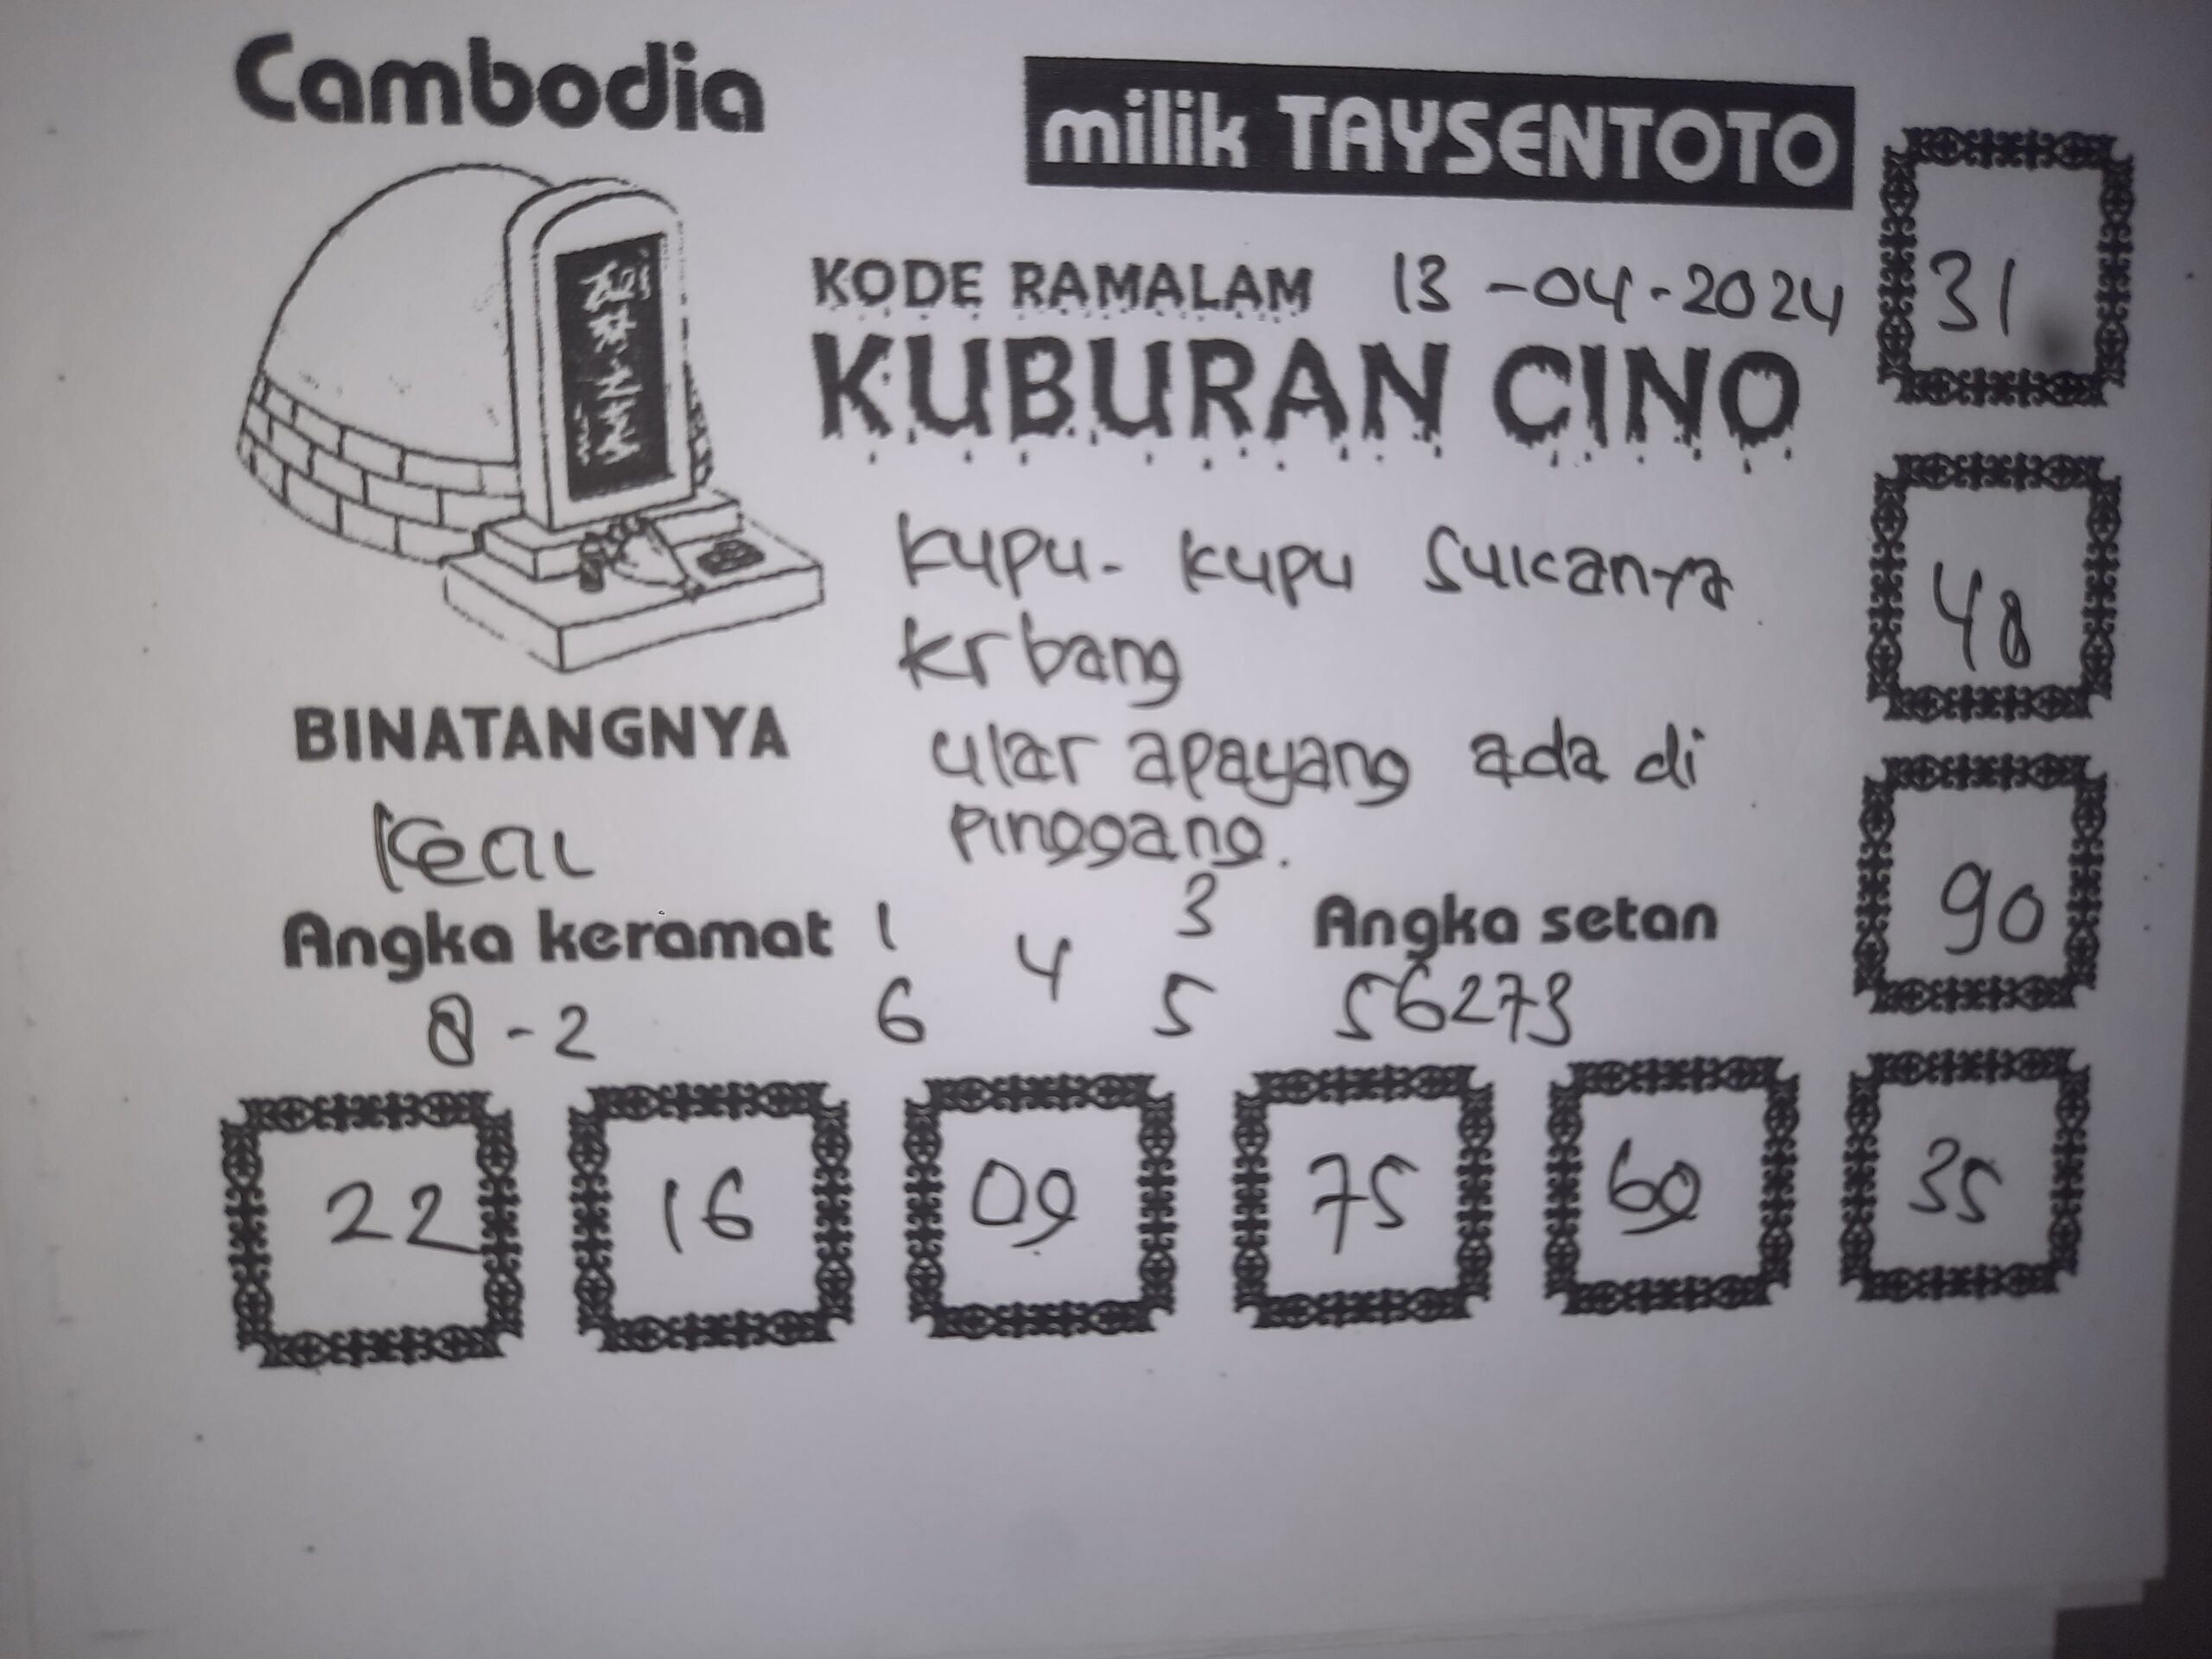 Cambodia
milik TAYSENTOTO
KODE RAMALAM 13-04-2024
KUBURAN CINO
31
kupu-kupu sukanya
krbang
48
BINATANGNYA
ular apayang ada di
pinggang.
Kecil
90
Angka keramat 1 3 Angka setan
4
8-2 6 5 56273
22 16 09 75 69 35